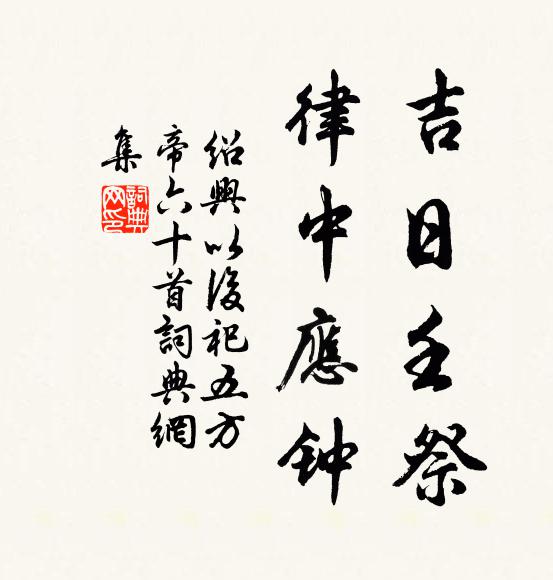 吉日壬祭
律中應钟
紹興以後祀五方
帝六十首詞典網
集
詞典
网印